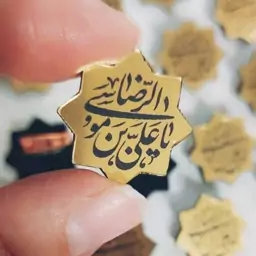 یا علی بن موسی الرضا